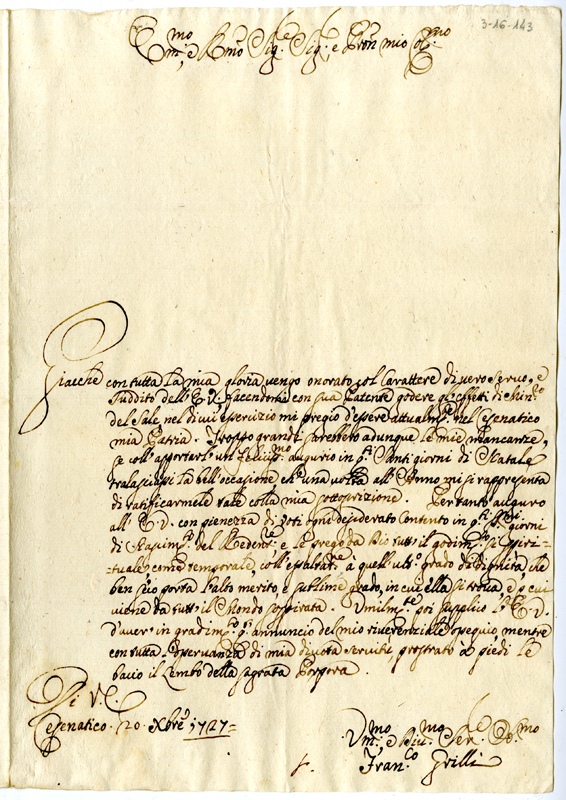 3-16-143
Em.mo e Rmo Sig.re Sig.re, e Pron mio Col.mo
Giacche con tutta la mia gloria vengo onorato col Carattere di vero Servo, e
suddito dell'E.V. facendomi con sua Patente godere gl'effetti di
del Sale nel di cui esercizio mi pregio d'essere attualm.te nel Cesenatico
mia Patria. Troppo grandi sarebbero adunque le mie mancanze,
se coll'apportarl'un feliciss.mo augurio in q.ti Santi giorni di Natale
tralasciassi la bell'occasione, ch'una volta all'Anno mi si rappresenta
di ratificarmele tale colla mia sottoscrizione. Pertanto auguro
all'E.V. con pienezza di voti ogni desiderato contento in q.ti S.ti giorni
di Nascim.to del Redent.re e le prego da Dio tutt'il godim.to sì spiri-
tuale, come temporale coll'esaltaz.ne à quell'ult.o grado di Dignità, che
ben si porta l'alto merito, e sublime grado, in cui ella si trova, e p cui
viene da tutt'il Mondo sospirata. Umilm.te poi supplico l'E.V.
d'aver in gradim.to q.to annuncio del mio riverenziale ossequio, mentre
con tutta osservanza di mia divota servitù, prostrato a piedi le
bacio il Lembo della sagrata Porpora.
Di V.E.
Cesenatico 20 Xbre 1727
Um.mo e Div.mo Ser.re Ob.mo
Fran.co Grilli